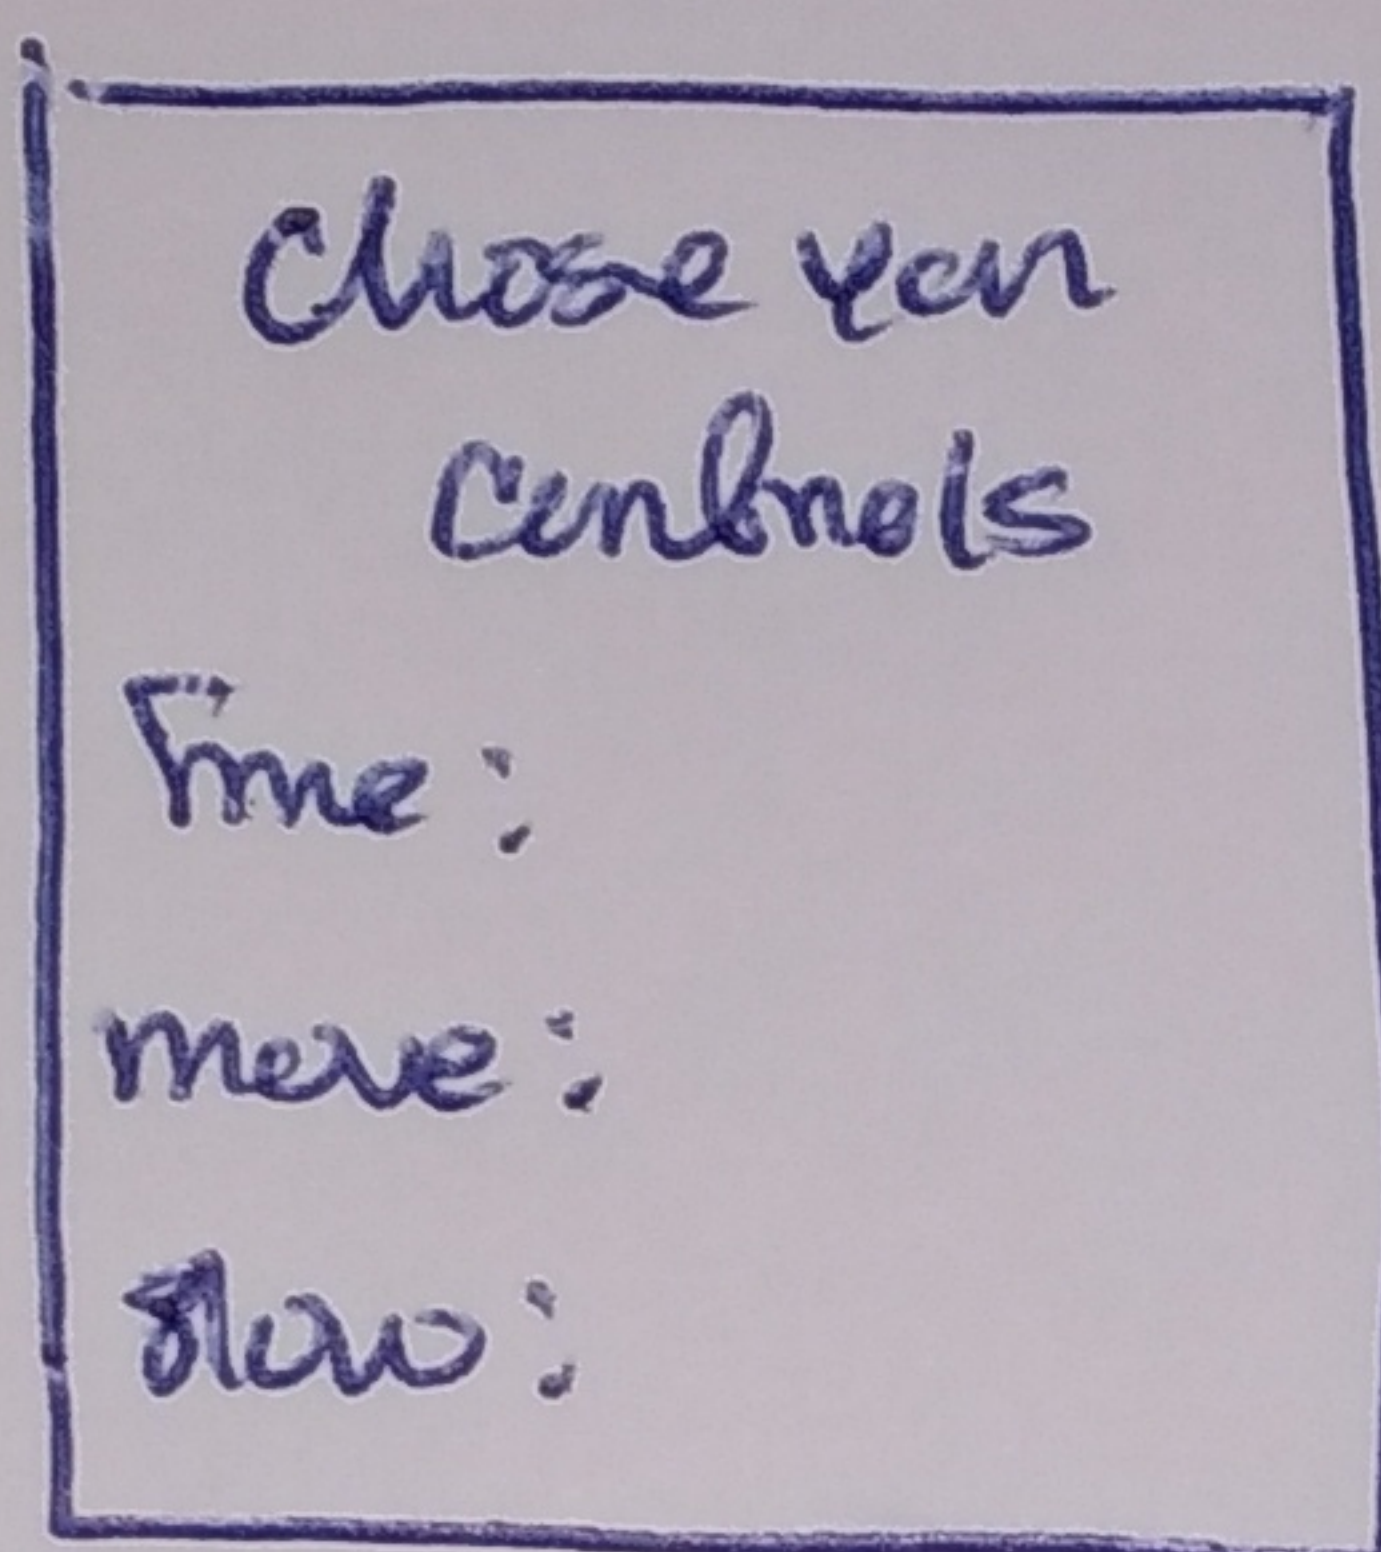 Chose your
controls
Fire:
move:
slow: